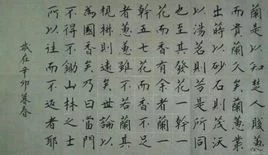 蘭是以知楚人賤蕙
而貴蘭矣蘭蕙叢
出蒔以砂石則茂沃
以湯茗則芳是所同
也至其發花一幹一
花而香有餘者蘭一
幹五七花而香不足
者蕙蕙雖不若蘭其
矣世論以
為國香矣乃曰當門
不得不鋤山林之士
所以往而不返者耶
歲在辛卯暮春